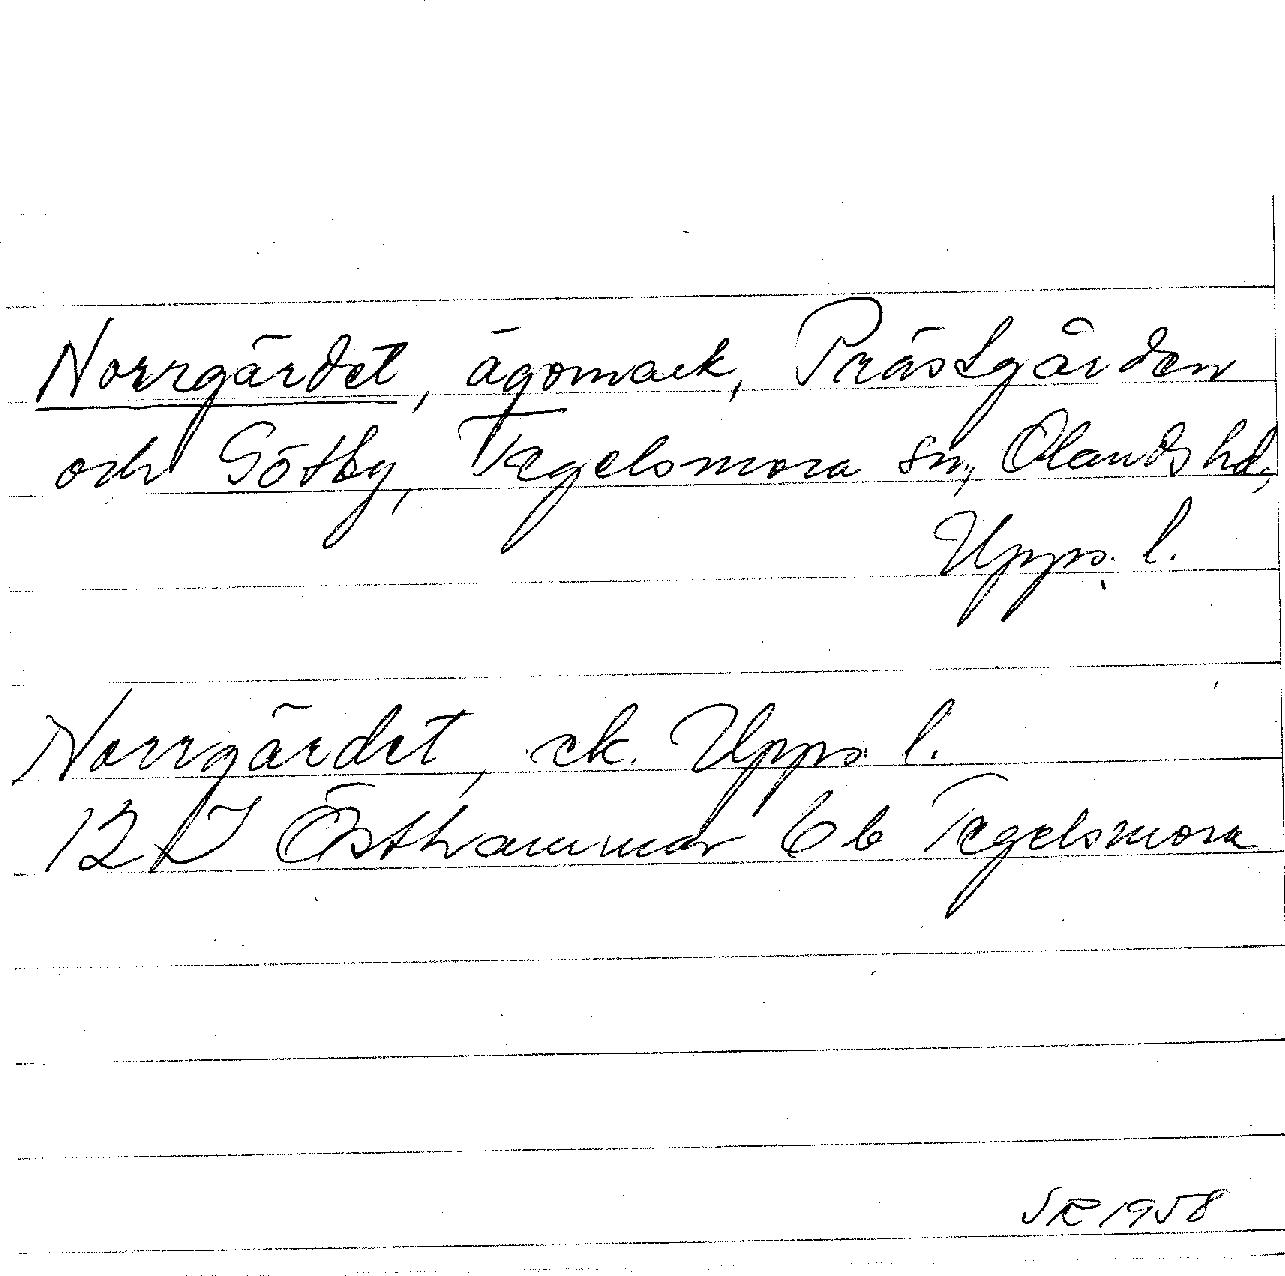 Norrgärdet, ägomark, Prästgården
och Götby, Tegelsmora sn, Olands hd,
Upps. l.
Norrgärdet, ek. Upps. l.
12 I Östhammar 6 b Tegelsmora
SR 1958